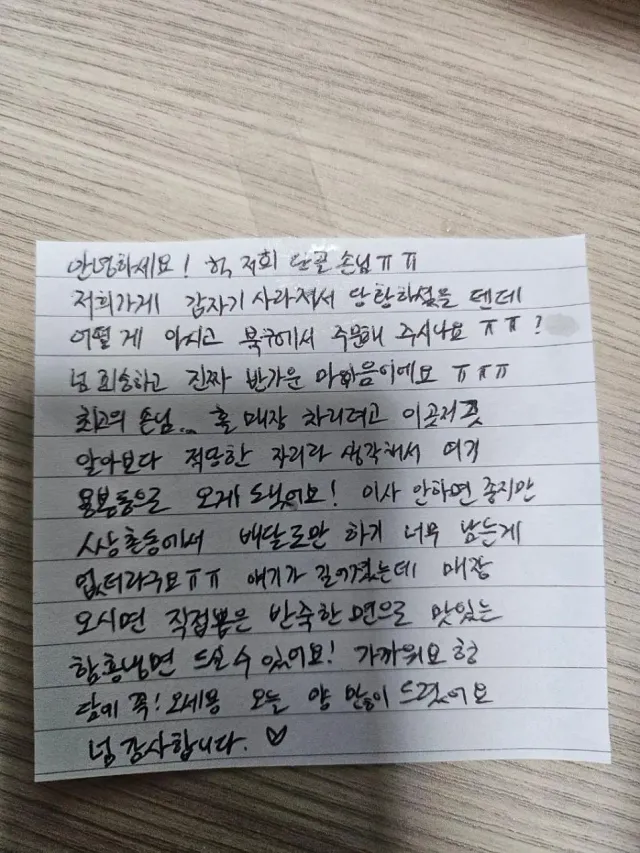 안녕하세요! 헉 저희 단골 손님ㅠㅠ
저희가게 갑자기 사라져서 당황하셨을 텐데
어떻게 아시고 북구에서 주문해 주시나요 ㅠㅠ?
넘 죄송하고 진짜 반가운 마음이에요 ㅠㅠㅠ
최고의 손님... 홀 매장 차리려고 이곳저곳
알아보다 적당한 자리라 생각해서 여기
용봉동으로 오게 됐어요! 이사 안하면 좋지만
배달로만 하기 너무 남는게
없더라구요ㅠㅠ 얘기가 길어졌는데 매장
오시면 직접뽑은 반죽한 면으로 맛있는
함흥냉면 드실 수 있어요! 가까워요 헝
담에 꼭! 오세용 오늘 양 많이 드렸어요
넘 감사합니다. ♡